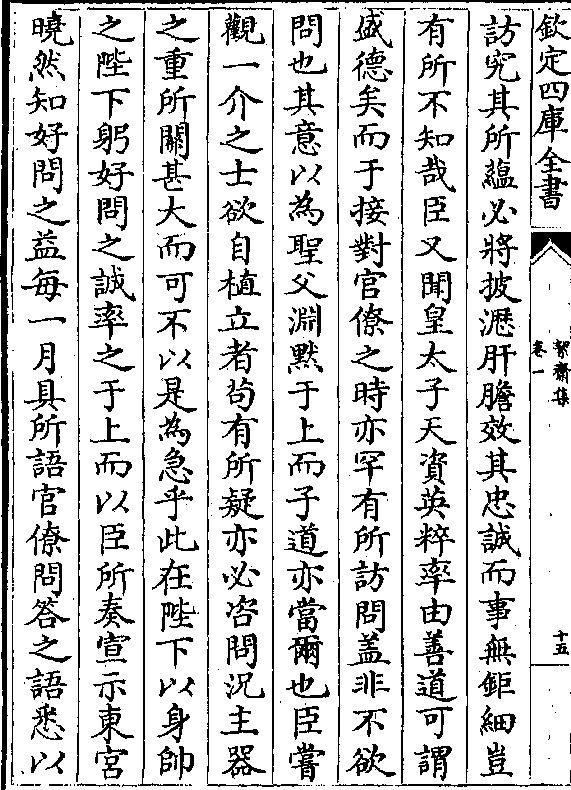 欽定四庫全書
絜齋集
卷一
十五
訪究其所蘊必將披瀝肝膽效其忠誠而事無鉅細豈
有所不知哉臣又聞皇太子天資英粹率由善道可謂
盛德矣而于接對官僚之時亦罕有所訪問蓋非不欲
問也其意以為聖父淵默于上而子道亦當爾也臣嘗
觀一介之士欲自植立者苟有所疑亦必咨問況主器
之重所關甚大而可不以是為急乎此在陛下以身帥
之陛下躬好問之誠率之于上而以臣所奏宣示東宮
曉然知好問之益每一月具所語官僚問答之語悉以